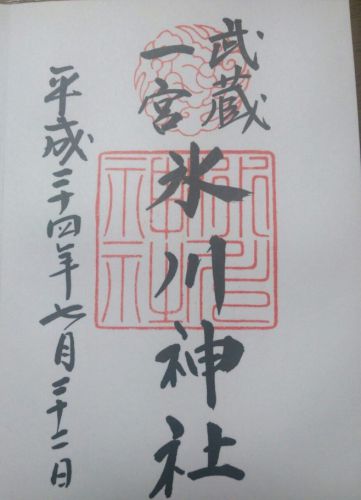 武蔵
一宮
氷川神社
平成二十四年七月二十二日
氷川
神社